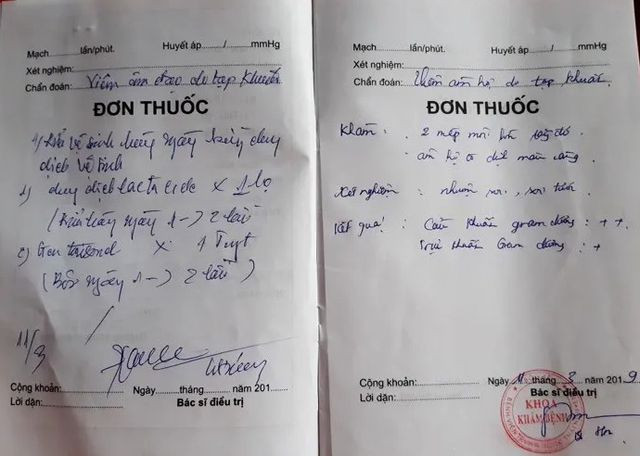 Mạch lần/phút. Huyết áp / mmHg
Xét nghiệm:
Chẩn đoán: Viêm âm đạo do tạp khuẩn
ĐƠN THUỐC
vệ sinh hàng ngày bằng dung
dịch vệ sinh
1) dung dịch lactacide x 1 lọ
ngày 1 -> 2 lần)
2) x 1 Tuýt
(Bôi ngày 1 -> 2 lần)
11/3
Cộng khoản: Ngày tháng năm 201
Lời dặn: Bác sĩ điều trị
Mạch lần/phút. Huyết áp / mmHg
Xét nghiệm:
Chẩn đoán: Viêm âm hộ do tạp khuẩn.
ĐƠN THUỐC
Khám: 2 mép môi lớn đỏ
âm hộ có dịch màu
Xét nghiệm: nhuộm soi, soi tươi
Kết quả: Cầu khuẩn gram dương: ++
Trực khuẩn Gram dương: +
Cộng khoản: Ngày 11 tháng 3 năm 2019
Lời dặn:
KHOA
KHÁM BỆNH